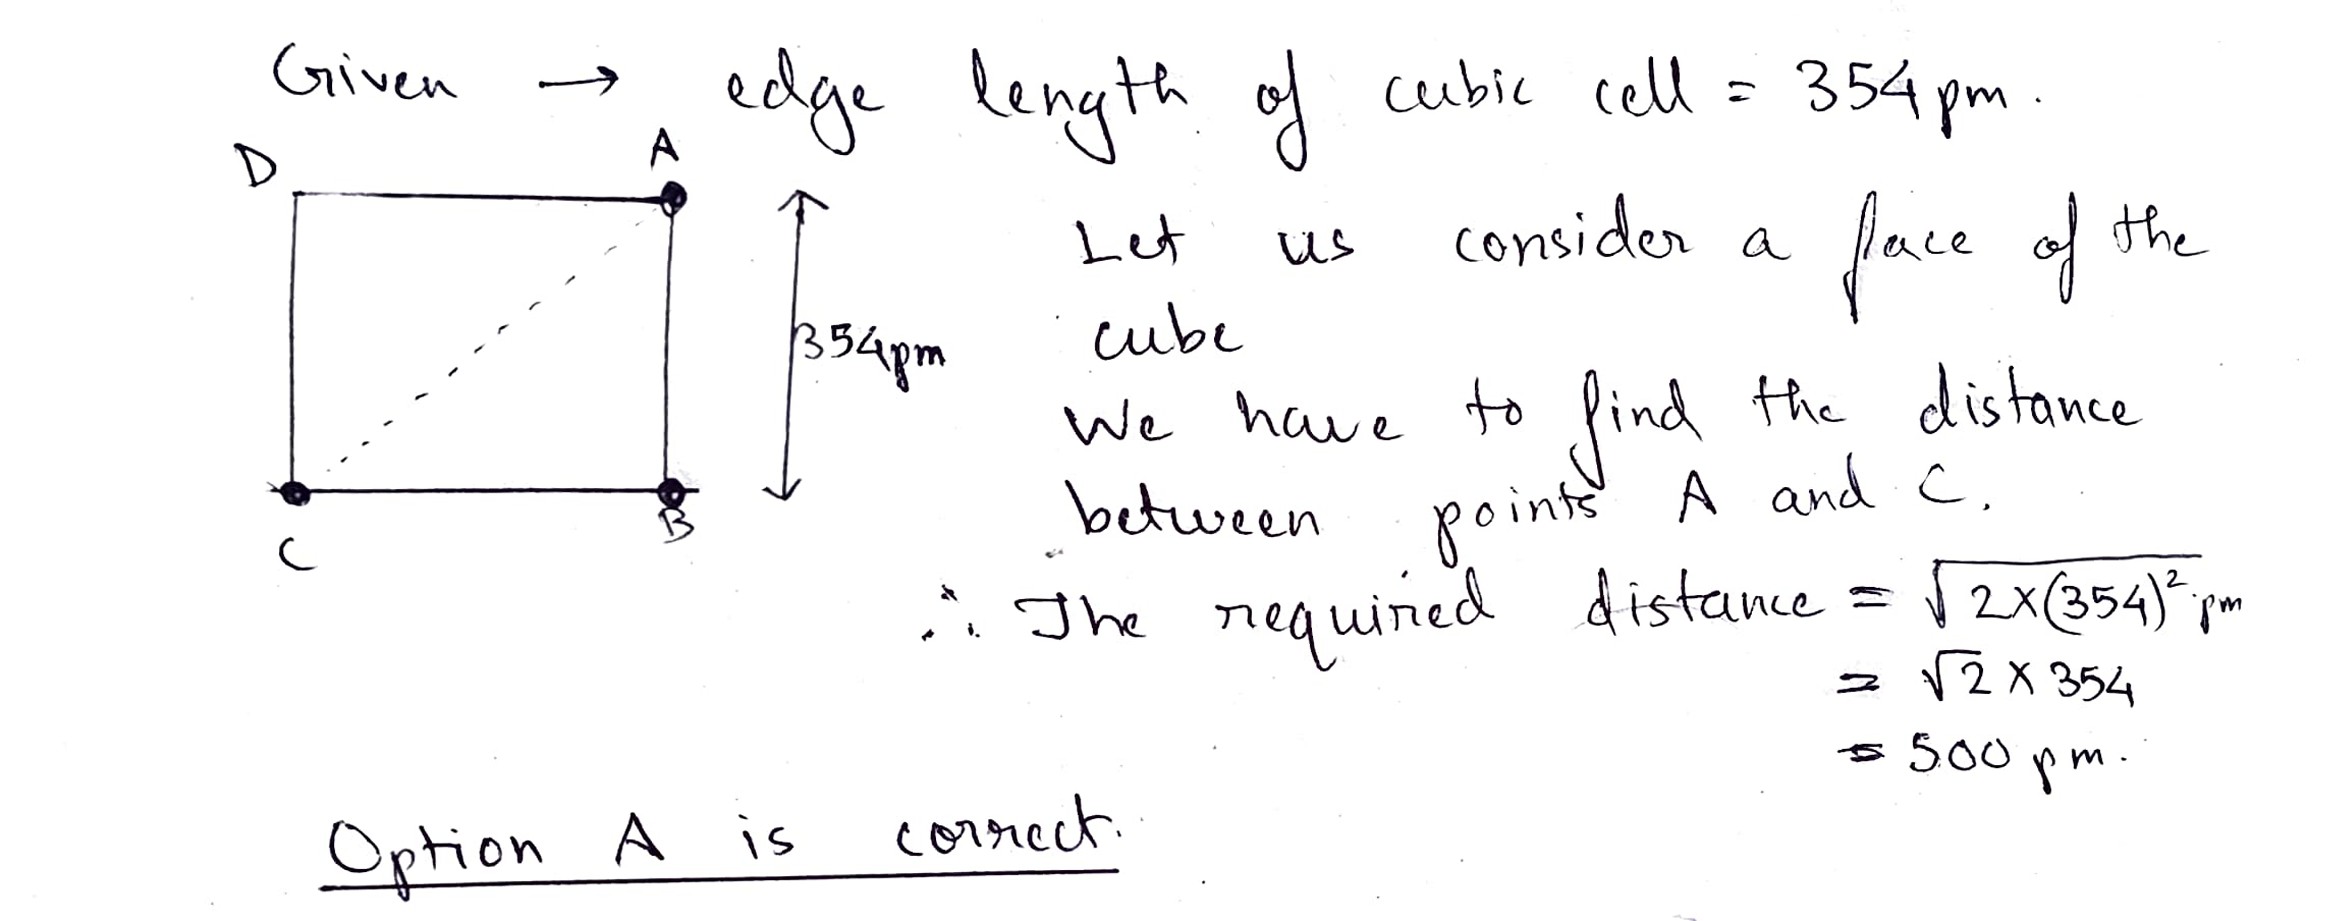 Given → edge length of cubic cell = 354 pm.
D
A
Let us consider a face of the
354pm
cube
We have to find the distance
between points A and C.
B
C
∴ The required distance = √2×(354)² pm
= √2 × 354
= 500 pm.
Option A is correct.